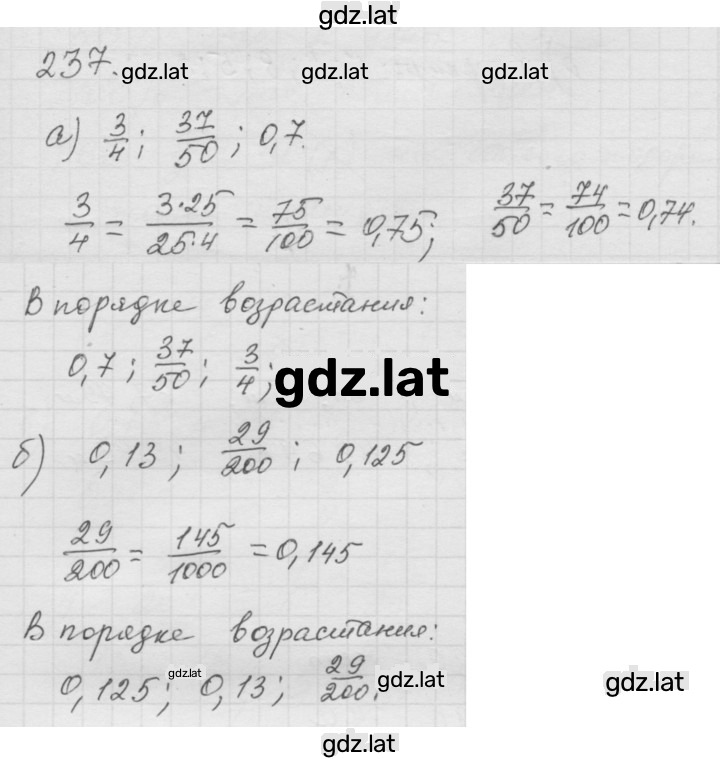 gdz.lat
237.
gdz.lat gdz.lat gdz.lat
а) 3/4; 37/50; 0,7.
3/4 = 3·25/25·4 = 75/100 = 0,75; 37/50 = 74/100 = 0,74.
В порядке возрастания:
0,7; 37/50; 3/4;
gdz.lat
б) 0,13; 29/200; 0,125
29/200 = 145/1000 = 0,145
В порядке возрастания:
0,125; 0,13; 29/200.
gdz.lat gdz.lat gdz.lat
gdz.lat